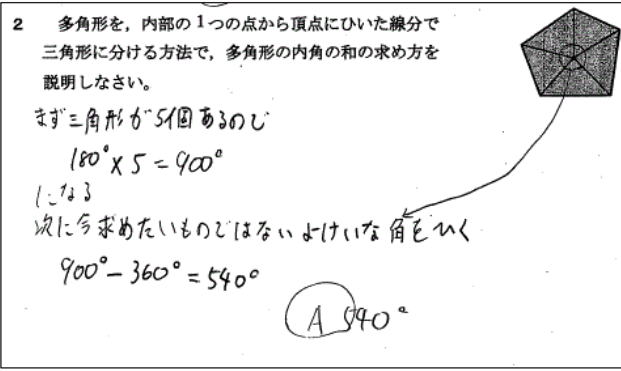 2 多角形を，内部の1つの点から頂点にひいた線分で
三角形に分ける方法で，多角形の内角の和の求め方を
説明しなさい。
まず三角形が5個あるので
180°×5=900°
になる
次に今求めたいものではないよけいな角をひく
900°-360°=540°
A 540°